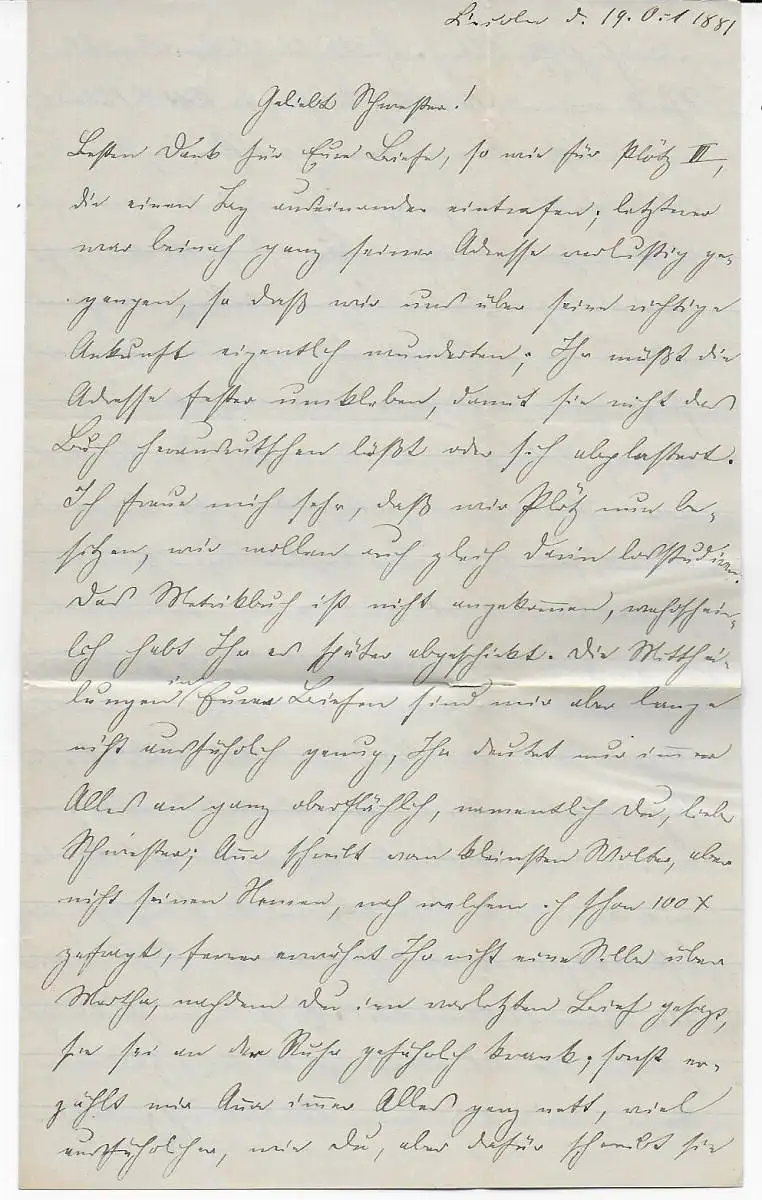 Lincoln d. 19. Oct 1881
Geliebte Schwester!
Besten Dank für Eure Briefe, so wie für Plötz III,
die einen Tag auseinander eintrafen; letzterer
war beinah ganz seiner Adresse verlustig ge-
gangen, so daß wir uns über seine richtige
Ankunft eigentlich wunderten; Ihr müßt die
Adresse fester umkleben, damit sie nicht das
Buch herausrutschen läßt oder sich abplastert.
Ich freue mich sehr, daß wir Plötz nun be-
sitzen, wir wollen auch gleich darin losstudiren.
Das Metrikbuch ist nicht angekommen, wahrschein-
lich habt Ihr es später abgeschickt. Die Mitthei-
lungen in Euren Briefen sind mir aber lange
nicht ausführlich genug, Ihr deutet nur immer
Alles an ganz oberflächlich, namentlich Du, liebe
Schwester; Anna schreibt vom kleinsten Wolter, aber
nicht seinen Namen, nach welchem ich schon 100 x
gefragt, ferner erwähnt Ihr nicht eine Silbe über
Martha, nachdem Du im vorletzten Brief gesagt,
sie sei an der Ruhr gefährlich krank; sonst er-
zählt mir Anna immer Alles ganz nett, viel
ausführlicher, wie Du, aber dafür schreibt sie